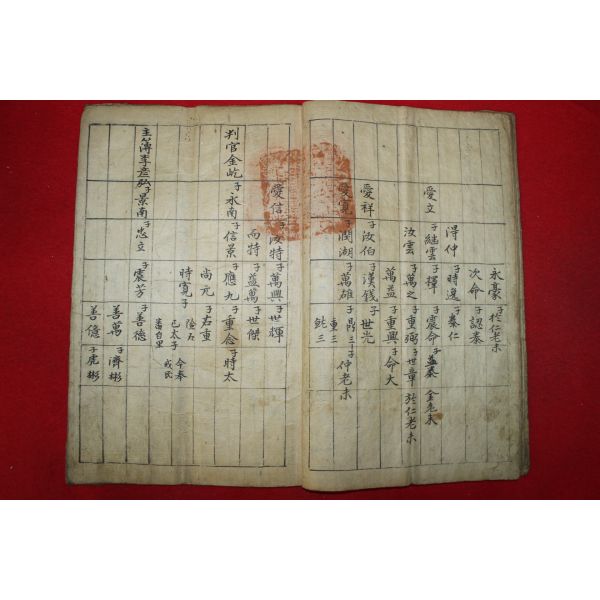 永豪 子 於仁老未
次命 子 認泰
得仲 子 時逸 子 泰仁
愛立 子 繼雲 子 擇 子 震命 子 益泰 金老未
汝雲 子 萬之 子 重弼 子 世章 於仁老未
萬益 子 重興 子 命大
愛祥 子 汝伯 子 漢 子 世光
愛寬 子 潤湖 子 萬雄 子 三 子 仲老未
重三
三
愛信 子 汝特 子 萬興 子 世輝
尚特 子 益萬 子 世傑
判官金屹 子 永南 子 信景 子 應九 子 重念 子 時太
尚元 子 右重
時寬 子
已太子 戒民
善白里
主簿李彦弘 子 景南 子 忠立 子 震芳 子 善德
善萬 子 濟彬
善億 子 虎彬